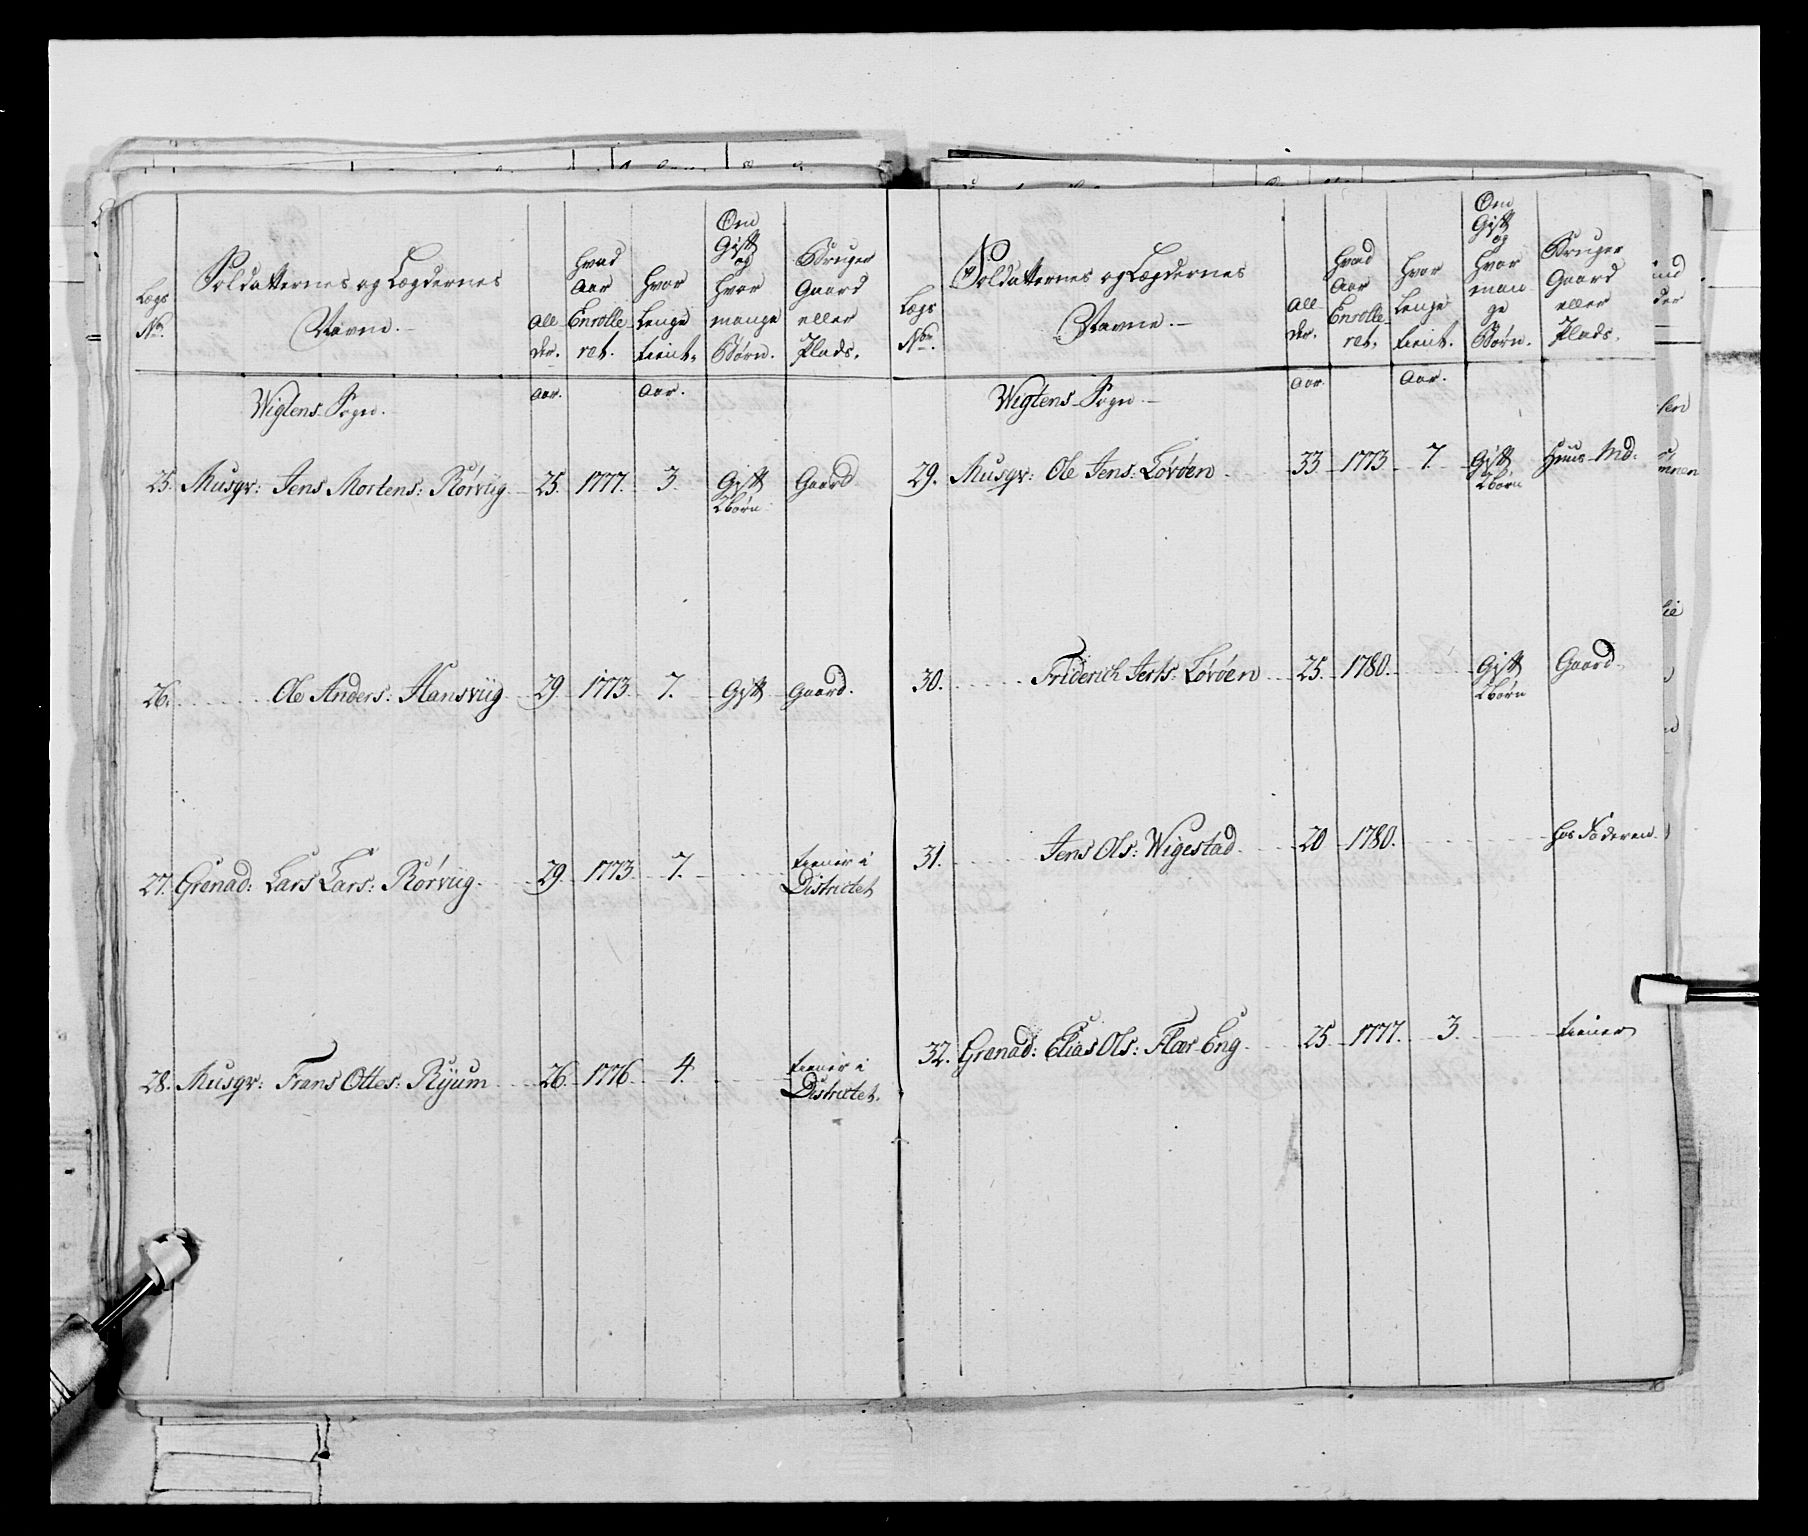 Lægs No.
Soldatternes og Lægdernes Navne.
All der.
Hvad Aar Enrolle ret.
Hvor Lenge tient.
Om Gift og hvor mange Børn.
Bruger Gaard eller Plads.
Wigtens Sogn.
Aar.
Aar.
25. Musqr: Jens Mortens: Rørviig 25. 1777. 3. Gift 2 børn Gaard
26. Ole Anders: Hansviig 29. 1773 7. Gift Gaard.
27. Granad: Lars Lars: Rørviig 29. 1773 7. tiener i Districtet
28. Musqr: Frans Ottes: Ryum 26. 1776 4. tiener i Districtet.
Lægs Nor.
Soldatternes og Lægdernes Navne.
All der.
Hvad Aar Enrolle ret.
Hvor Lenge tient.
Om Gift og hvor man ge Børn.
Bruger Gaard eller Plads.
Wigtens Sogn
Aar.
Aar.
29. Musqr: Ole Jens: Lovøen 33 1773 7. Gift 2 børn Huus Md:
30. Friderich Jens: Lovøen 25. 1780. Gift 2 børn Gaard
31. Jens Ols: Wigestad 20 1780. hos Faderen
32. Granad: Elias Ols: Flær Eng 25 1777. 3. tiener